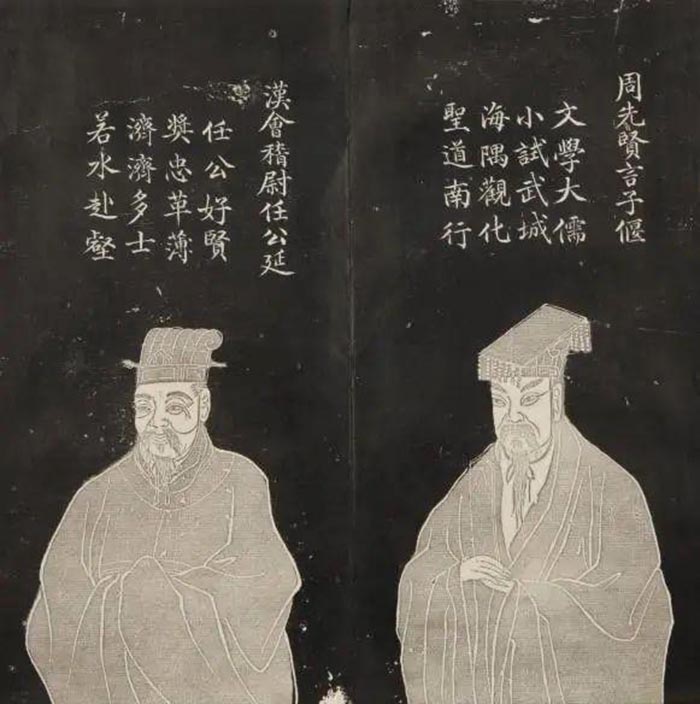 周先賢言子偃
文學大儒
小試武城
海隅觀化
聖道南行
漢會稽尉任公延
任公好賢
獎忠革薄
濟濟多士
若水赴壑